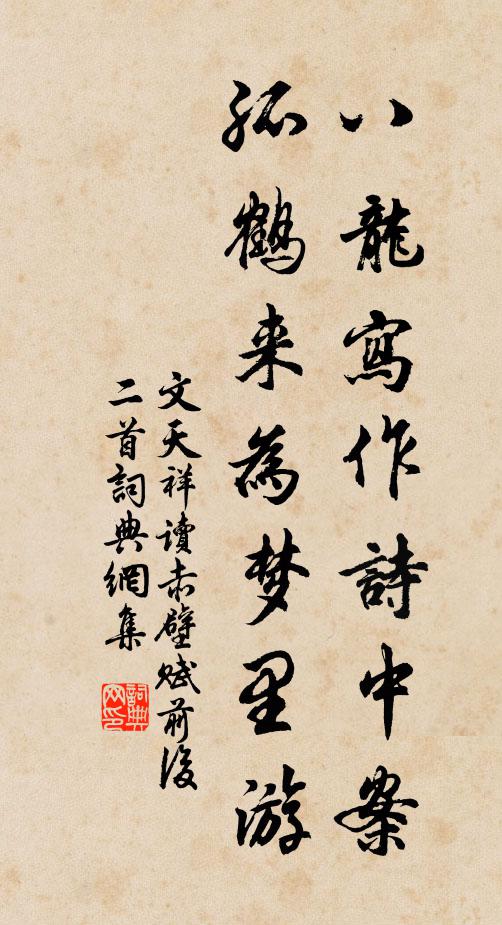 八龍寫作詩中案
孤鶴来為梦里游
文天祥讀赤壁賦前後
二首詞典網集
詞典
网印